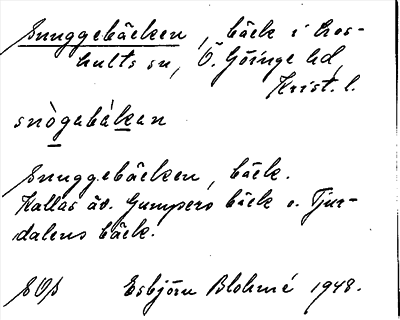 Snuggebäcken, bäck i Los-
hults sn, Ö. Göinge hd,
Krist. l.
snògabákan
Snuggebäcken, bäck.
Kallas äv. Gumpers bäck o. Tjur-
dalens bäck.
Esbjörn Blohmé 1948.